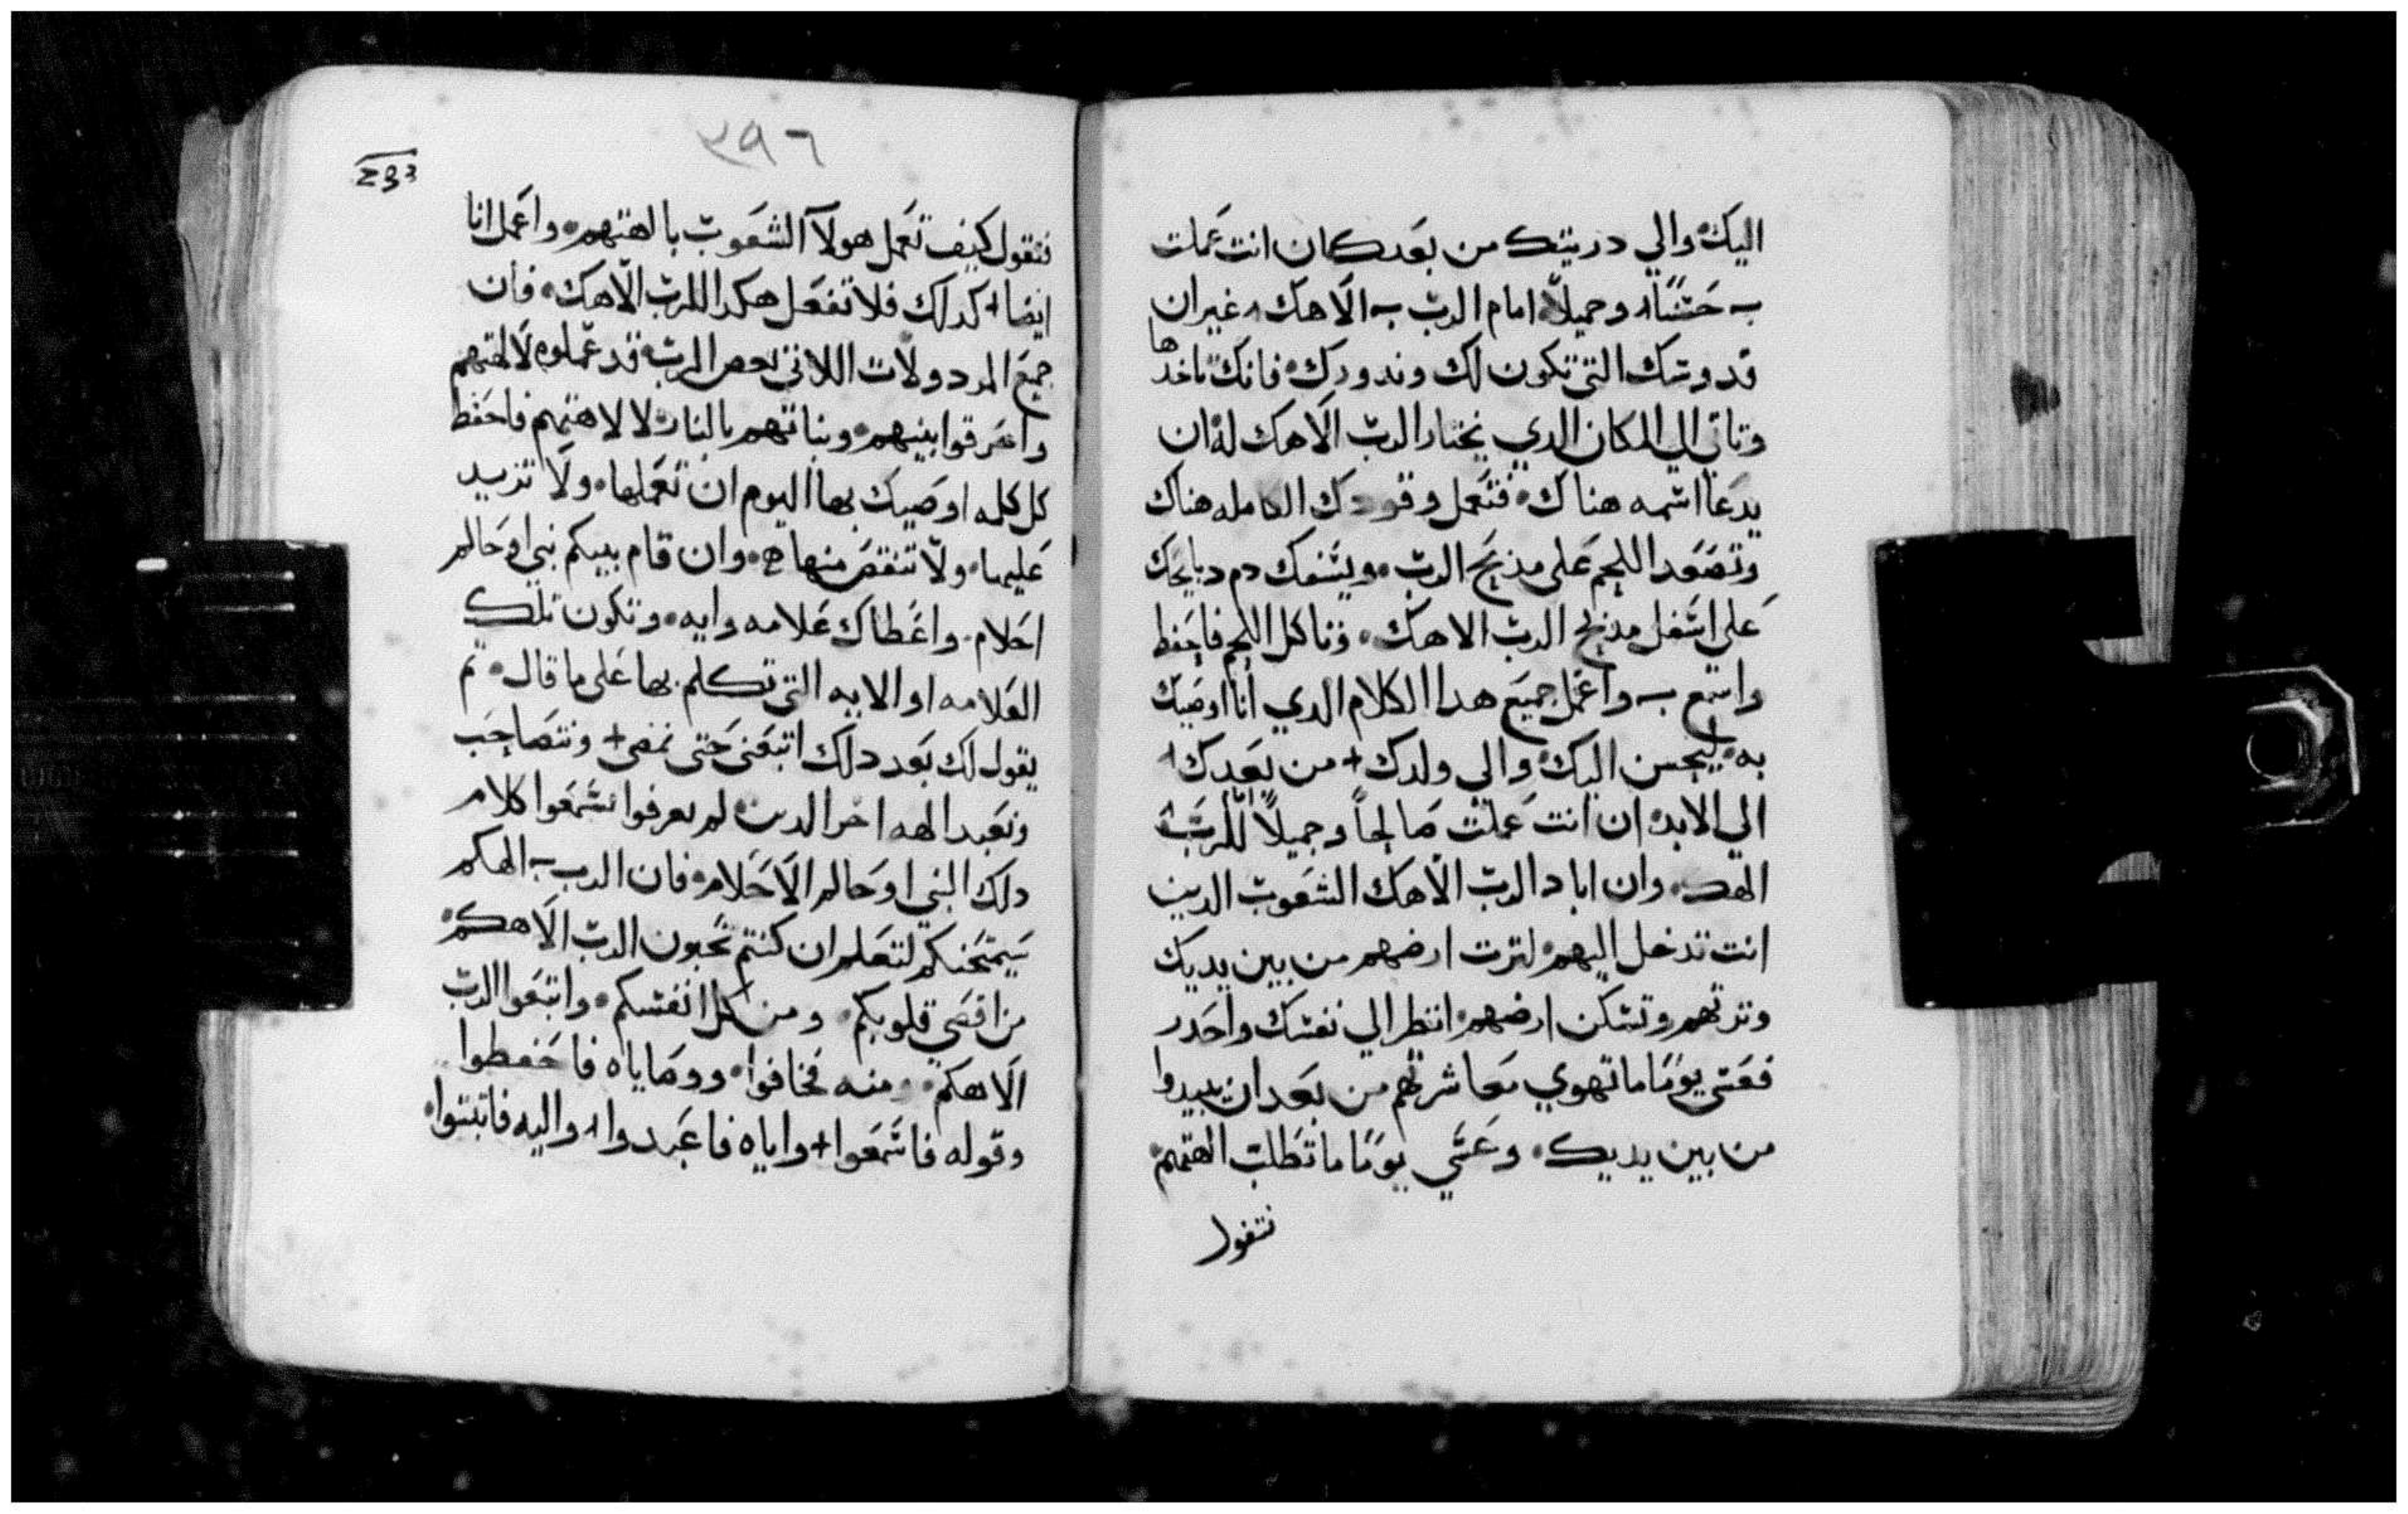 اليك والي دريتك من بعدك ان انت عملت
حسنا وجميلا امام الرب الاهك غير ان
قدوسك التي تكون لك وندورك فانك تاخدها
وتاتي الي المكان الدي يختار الرب الاهك له ان
يدعا اسمه هناك فتعمل وقودك الكامله هناك
وتصعد اللحم على مذبح الرب ويسفك دم دبايحك
على اسفل مذبح الرب الاهك وتاكل اللحم فاحفظ
واسمع واعمل جميع هدا الكلام الدي انا اوصيك
به ليحسن اليك والي ولدك من بعدك
الي الابد ان انت عملت صالحاً وجميلاً للرب
الهك وان اباد الرب الاهك الشعوب الدين
انت تدخل اليهم لترت ارضهم من بين يديك
وترتهم وتسكن ارضهم انظر الي نفسك واحدر
فعسى يومًا ما تهوي معاشرتهم من بعد ان يبيدوا
من بين يديك وعسي يومًا ما تطلب الهتهم
فتقول
٣٩٦
فتقول كيف تعمل هولا الشعوب بالهتهم واعمل انا
ايضا كدلك فلا تفعل هكدا للرب الاهك فان
جميع المردولات اللاتي بغض الرب قد عملوه لالهتهم
واحرقوا بنيهم وبناتهم بالنار لالاهتهم فاحفظ
كل كلمه اوصيك بها اليوم ان تعملها ولا تزيد
عليها ولا تنقص منها وان قام بينكم نبي او حالم
احلام واعطاك علامه وايه وتكون تلك
العلامه او الايه التي تكلم بها على ما قال تم
يقول لك بعد دلك اتبعني حتى نمضى ونتصاحب
ونعبد الهه اخر الدين لم يعرفوا تسمعوا كلام
دلك النبي او حالم الاحلام فان الرب الهكم
يمتحنكم لتعلم ان كنتم تحبون الرب الاهكم
من اقصى قلوبكم ومن كل انفسكم واتبعوا الرب
الاهكم ومنه فخافوا ووصاياه فاحفطوا
وقوله فاسمعوا واياه فاعبدوا واليه فاتبتوا